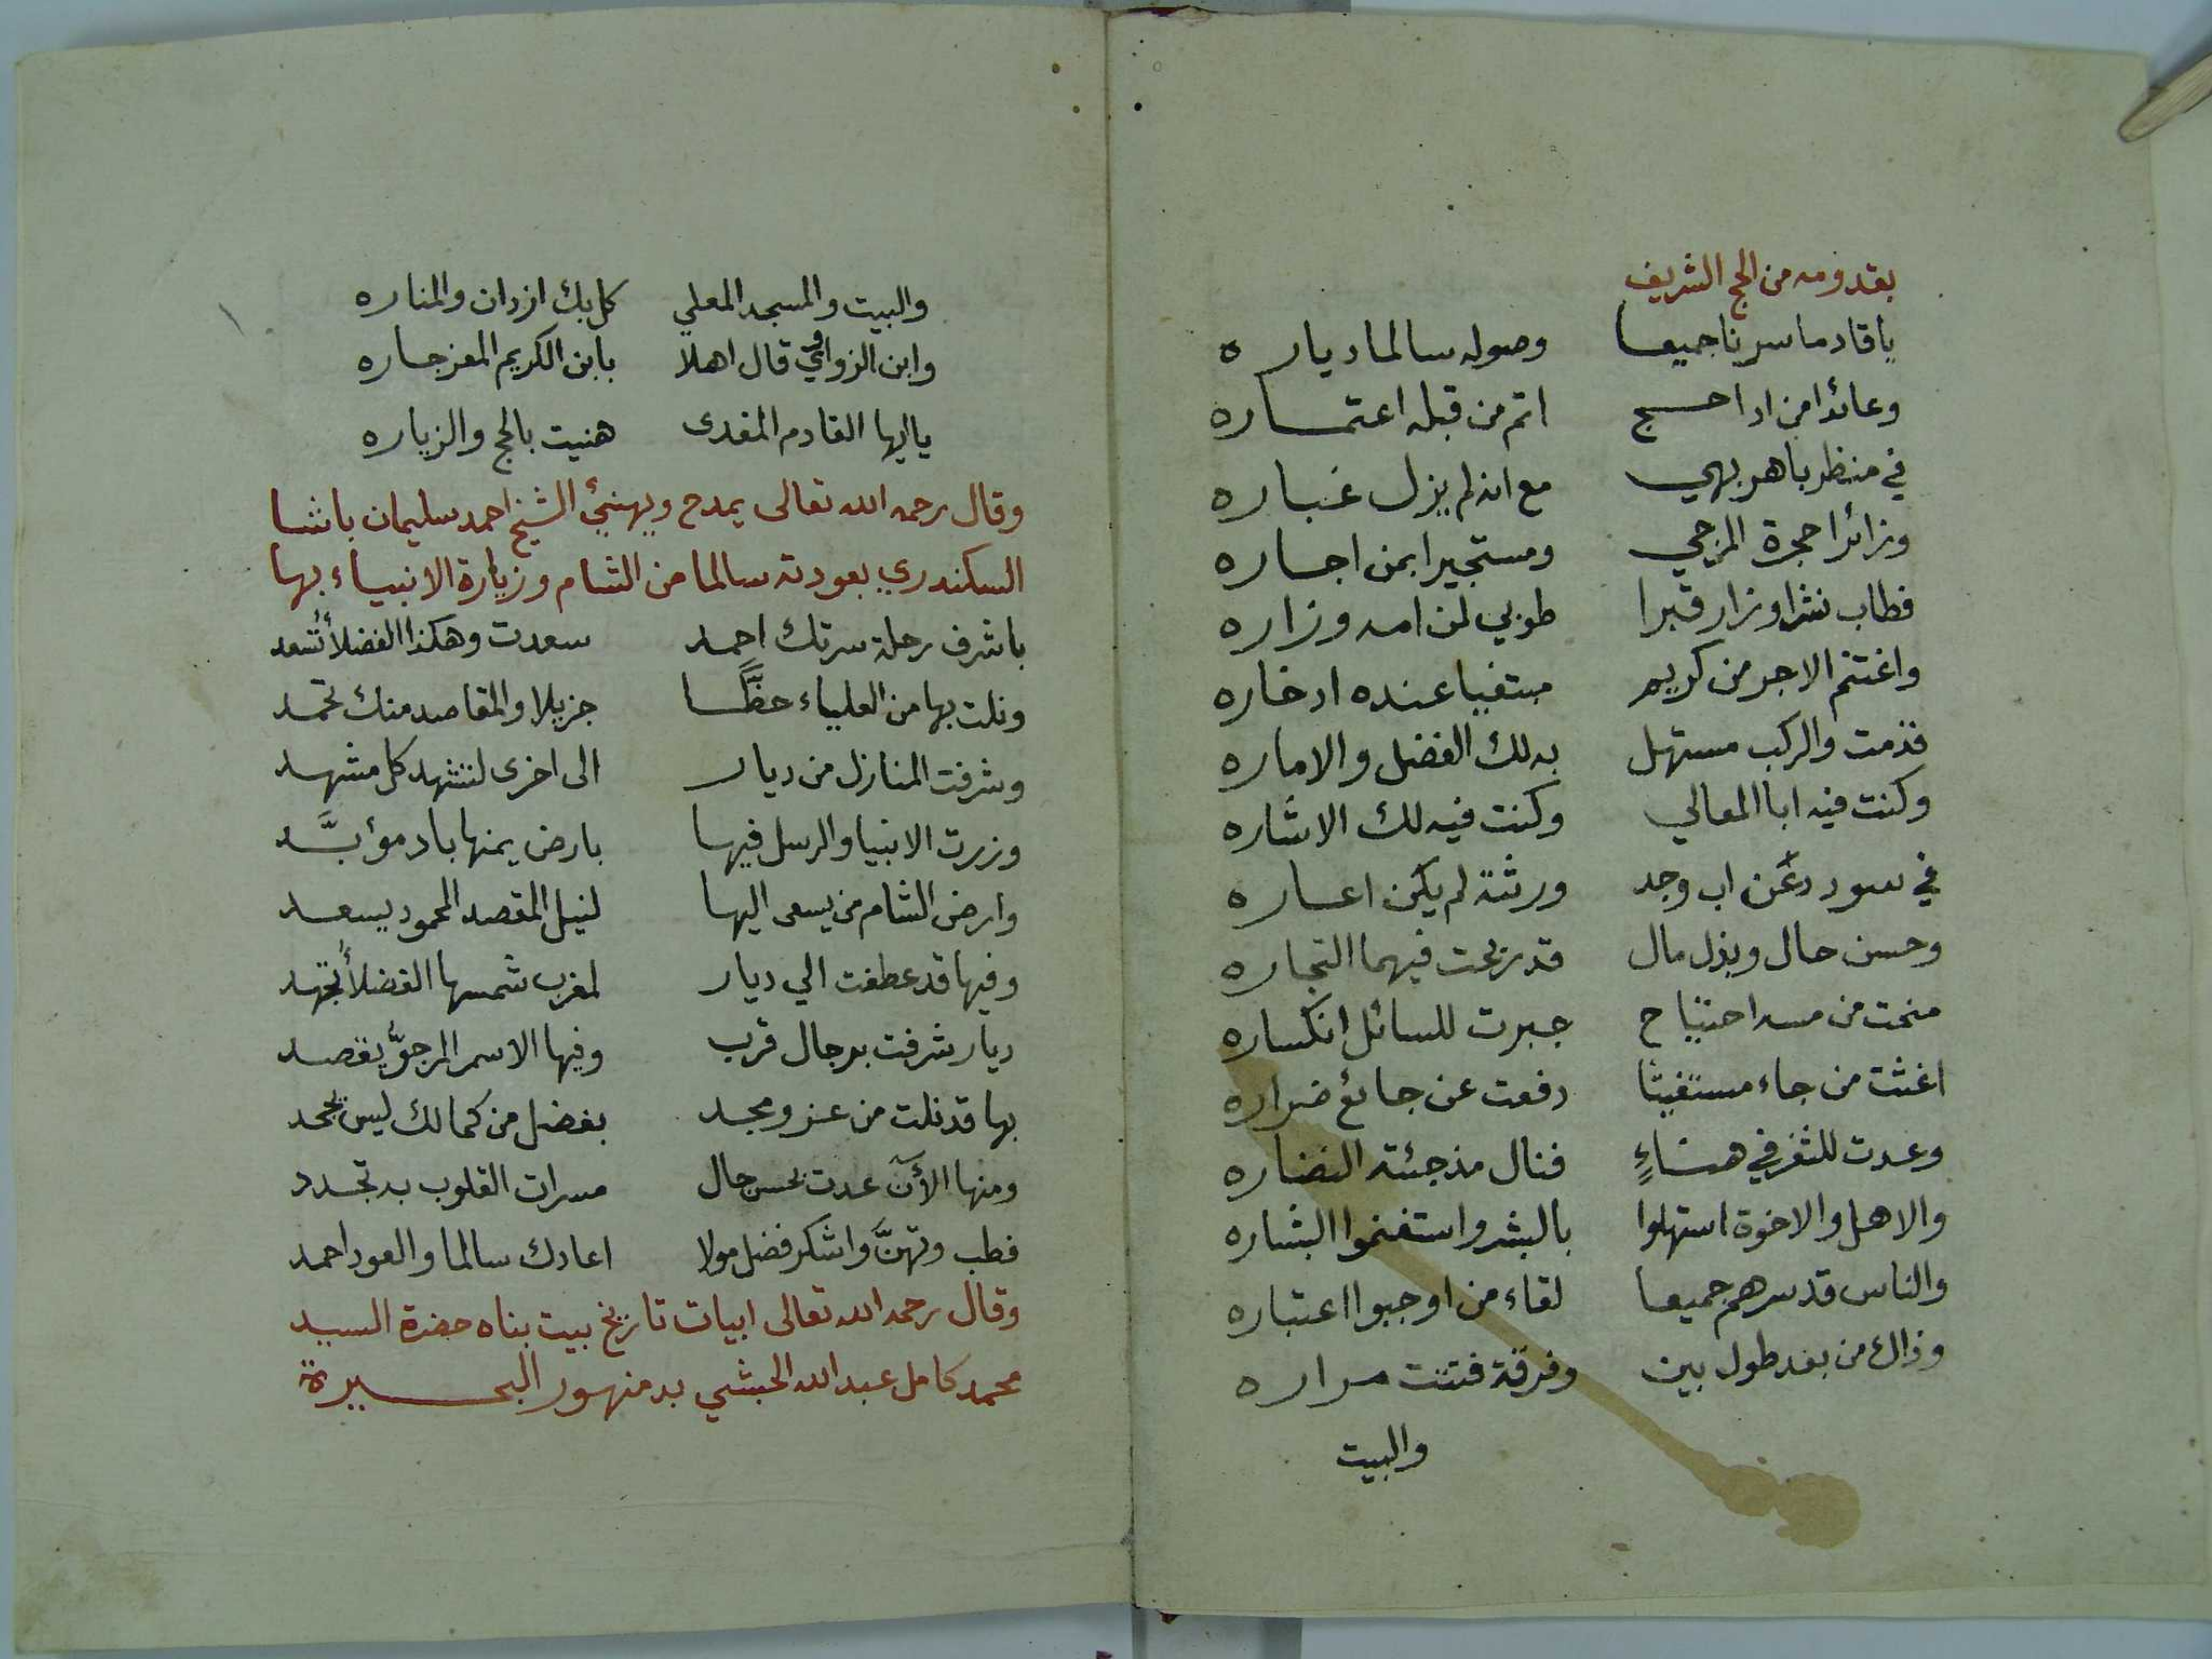 بقدومه من الحج الشريف
يا قادما سرنا جميعا وصوله سالما دياره
وعائدا من اداحج اتم من قبله اعتماره
في منظر باهر بهي مع انه لم يزل غباره
وزائرا حجرة المرجي ومستجيرا بمن اجاره
فطاب نشرا وزار قبرا طوبي لمن امه وزاره
واغتنم الاجر من كريم مبتغيا عنده ادخاره
قدمت والركب مستهل به لك الفضل والاماره
وكنت فيه ابا المعالي وكنت فيه لك الاشاره
في سودد عن اب وجد ورثته لم يكن اعاره
وحسن حال وبذل مال قد ربحت فيهما التجاره
منحت من مسه احتياج جبرت للسائل انكساره
اغثت من جاء مستغيثا دفعت عن جائع ضراره
وعدت للثغر في هناءٍ فنال مذ جئته النضاره
والاهل والاخوة استهلوا بالبشر واستغنموا البشاره
والناس قد سرهم جميعا لقاء من اوجبوا اعتباره
وذاك من بعد طول بين وفرقة فتتت مراره
والبيت
والبيت والمسجد المعلي كل بك ازدان والمناره
وابن الزواقي قال اهلا بابن الكريم المعز جاره
يا ايها القادم المفدى هنيت بالحج والزياره
وقال رحمه الله تعالى يمدح ويهنئ الشيخ احمد سليمان باشا
السكندري بعودته سالما من الشام وزيارة الانبياء بها
باشرف رحلة سرتك احمد سعدت وهكذا الفضلأ تُسعد
ونلت بها من العلياء حظًّا جزيلا والمقاصد منك تحمد
وشرفت المنازل من ديار الى اخرى لتشهد كل مشهد
وزرت الانبيا والرسل فيها بارض يمنها باد مؤبَّد
وارض الشام من يسعى اليها لنيل المقصد المحمود يسعد
وفيها قد عطفت الي ديار لمغرب شمسها الفضلأ تجهد
ديار شرفت برجال قرب وفيها الاسمر المرجوُّ يقصد
بها قد نلت من عز ومجد بفضل من كمالك ليس يجحد
ومنها الأن عدت بحسن حال مسرات القلوب به تجدد
فطب وتهنَّ واشكر فضل مولا اعادك سالما والعود احمد
وقال رحمه الله تعالى ابيات تاريخ بيت بناه حضرة السيد
محمد كامل عبد الله الحبشي بدمنهور البحيرة